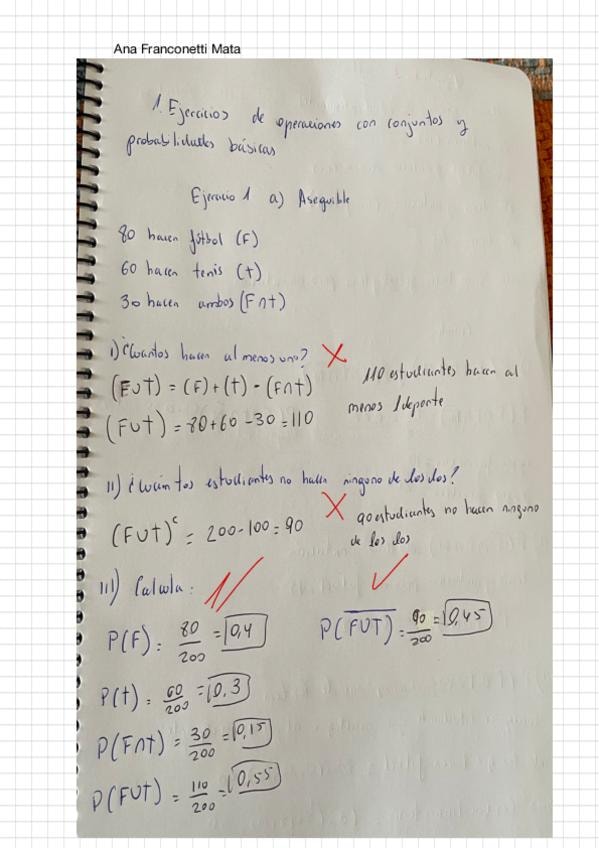 Ana Franconetti Mata
1. Ejercicios de operaciones con conjuntos y
probabilidades básicas
Ejercicio 1 a) Asequible
80 hacen fútbol (F)
60 hacen tenis (t)
30 hacen ambos (F∩t)
I) ¿Cuántos hacen al menos uno?
(FUt) = (F) + (t) - (F∩t)
(FUt) = 80+60-30=110
110 estudiantes hacen al
menos 1 deporte
II) ¿Cuántos estudiantes no hacen ninguno de los dos?
(FUt)ᶜ = 200-100=90
90 estudiantes no hacen ninguno
de los dos
III) Calcula:
P(F) = 80/200 = 0,4
P(F̅U̅T̅) = 90/200 = 0,45
P(t) = 60/200 = 0,3
P(F∩t) = 30/200 = 0,15
P(FUt) = 110/200 = 0,55